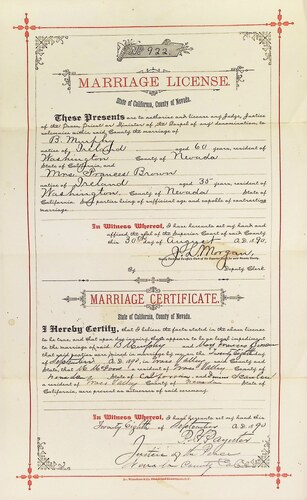 No 922
MARRIAGE LICENSE.
State of California, County of Nevada.
These Presents are to authorize and license any Judge, Justice
of the Peace, Priest or Minister of the Gospel of any denomination, to
solemnize within said County the marriage of
B. Murphy
native of Ireland aged 60 years, resident of
Washington County of Nevada
State of California, and
Mrs. Brown
native of Ireland aged 35 years, resident of
Washington, County of Nevada State of
California. Said parties being of sufficient age and capable of contracting
marriage.
In Witness Whereof, I have hereunto set my hand and
affixed the seal of the Superior Court of said County
this 30th day of August A.D. 1890.
J. L. Morgan
By
Deputy Clerk.
MARRIAGE CERTIFICATE.
State of California, County of Nevada.
I Hereby Certify, that I believe the facts stated in the above license
to be true, and that upon due inquiry there appears to be no legal impediment
to the marriage of said B. Murphy and
that said parties were joined in marriage by me on the Twenty Eighth of
September A.D. 1890, in Valley County and
State, that a resident of Valley
County of Nevada State of California, and
a resident of Valley County of Nevada State of
California, are present as witnesses of said ceremony.
In Witness Whereof, I have hereunto set my hand this
Twenty Eighth of September A.D. 1890
Justice of the Peace
Nevada County Cal